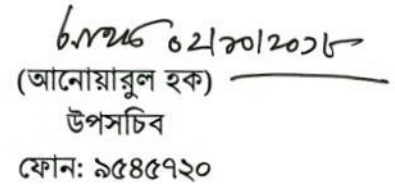 ০২/১০/২০১৮
(আনোয়ারুল হক)
উপসচিব
ফোন: ৯৫৪৫৭২০